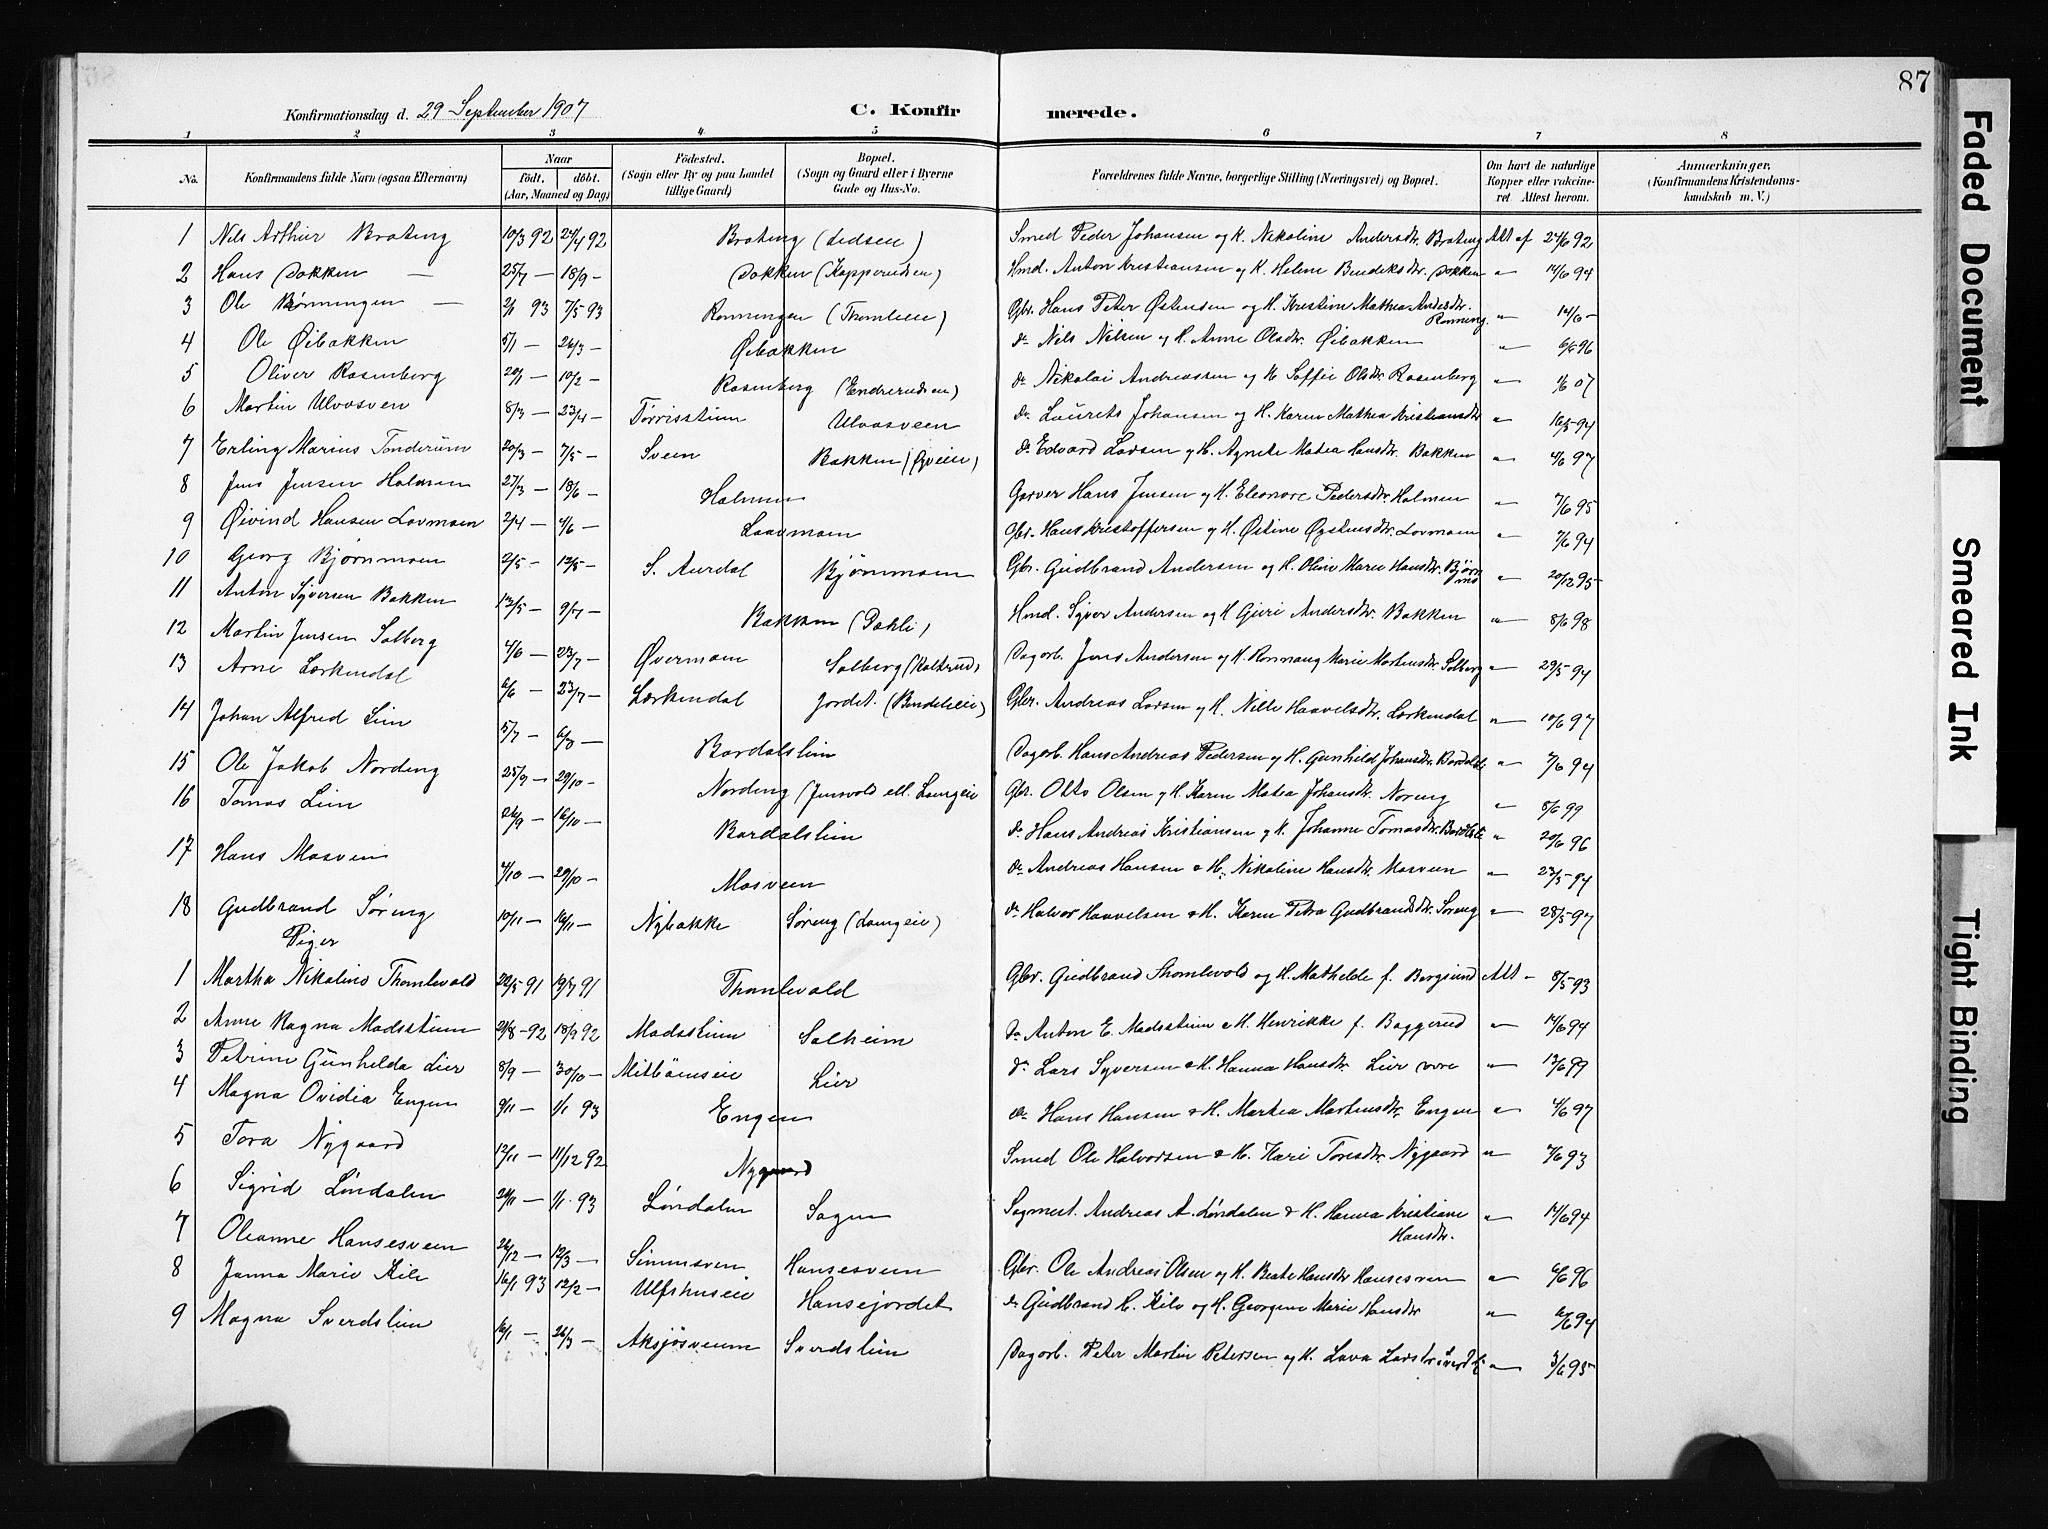 87
Konfirmationsdag d. 29 September 1907 C. Konfirmerede.
1 2 3 4 5 6 7 8
No. Konfirmandens fulde Navn (ogsaa Efternavn). Naar født, døbt. (Aar, Maaned og Dag) Fødested. (Sogn eller By og paa Landet tillige Gaard) Bopæl. (Sogn og Gaard eller i Byerne Gade og Hus-No. Forældrenes fulde Navne, borgerlige Stilling (Næringsvei) og Bopæl. Om havt de naturlige Kopper eller vakcineret. Attest herom. Anmærkninger. (Konfirmandens Kristendomskundskab m. V.)
1 Nils Arthur Brateng 10/3 92 24/4 92 Brateng (Lidseu) Smed Peder Johansen og H. Nikoline Andersdtr. Brateng Att af 24/6 92
2 Hans Dokken — 25/7 — 18/9 — Dokken (Kopperudseu) Hmd. Anton Kristiansen og H. Helene Bendiksdtr. Dokken " 14/6 94
3 Ole Rønningen — 2/1 93 7/5 93 Rønningen (Thomleie) Gbr. Hans Peter Østensen og H. Kristine Mathea Andersdtr. Rønning. " 14/6 —
4 Ole Øibakken 8/1 — 26/3 — Øibakken do Nils Nilsen og H. Anne Olsdtr. Øibakken " 6/6 96
5 Oliver Rosenberg 20/1 — 10/2 — Rosenberg (Endrerudseu) do Nikolai Andreassen og H. Soffie Olsdtr. Rosenberg " 1/6 07
6 Martin Ulvosven 8/3 — 23/4 — Tørrisstuen Ulvosveen do. Laurets Johansen og H. Karen Mathea Kristiansdtr " 16/5 94
7 Erling Marius Tonderum 20/3 — 7/5 — Sveen Bakken (Øveie) do. Edvard Larsen og H. Agnete Matea Hansdtr. Bakken " 4/6 97
8 Jens Jensen Holmen 27/3 — 18/6 — Holmen Garver Hans Jensen og H. Eleonore Pedersdtr. Holmen " 7/6 95
9 Øivind Hansen Lovmoen 2/4 — 4/6 — Laavmoen Gbr. Hans Kristoffersen og H. Østine Øystensdtr. Lovmoen " 7/6 94
10 Georg Bjørnmoen 2/5 — 12/5 — S. Aurdal Bjørnmoen Gbr. Gudbrand Andersen og H. Oline Marie Hansdtr. Bjørnmo " 20/12 95
11 Anton Syversen Bakken 13/5 — 9/7 — Bakken (Dahli) Hmd. Syver Andersen og H Gieri Andersdtr. Bakken " 8/6 98
12 Martin Jensen Solberg 4/6 — 23/7 — Øvermoen Solberg (Kolkrud) Dagarb. Jens Andersen og H. Ronnaug Marie Martinsdtr. Solberg " 29/5 94
13 Arne Lærkendal 6/6 — 23/7 — Lærkendal Jordet. (Bindeleie) Gbr. Andreas Larsen og H. Nille Haavelsdtr. Lærkendal " 10/6 97
14 Johan Alfred Lien 5/7 — 6/8 — Bardalslien Dagarb. Hans Andreas Pedersen og H. Gunhild Johansdtr. Bardalsli " 7/6 94
15 Ole Jakob Nordeng 25/7 — 29/10 — Nordeng (Jensvold ell. Lomgeie Gbr. Otto Olsen og H. Karen Matea Johansdtr. Noreng " 8/6 99
16 Tomas Lien 26/9 — 16/10 — Bardalslien do. Hans Andreas Kristiansen og H. Johanne Tomasdtr. Bardalsli " 20/6 96
17 Hans Mosveen 4/10 — 29/10 — Mosveen do Andreas Hansen & H. Nikoline Hansdtr. Mosveen " 23/5 94
18 Gudbrand Søreng 10/11 — 16/11 — Nybakke Søreng (Lomgeie) do Halvor Haavelsen & H. Karen Petra Gudbrandsdtr. Søreng " 28/5 97
Piger
1 Martha Nikoline Thomlevold 22/5 91 19/7 91 Thomlevold Gbr. Gudbrand Thomlevold og H. Mathilde f. Bergsund Att — 8/5 93
2 Anne Ragna Madsstuen 21/8 — 92 18/9 92 Madsstuen Solheim do Anton E. Madsstuen & H. Henrikke f. Baggerud " 14/6 94
3 Petrine Gunhilda Lier 8/9 — 30/10 — Mitbømseie Lier do Lars Syversen & H. Hanna Hansdtr. Lier " 13/6 99
4 Magna Ovidia Engen 9/11 — 1/1 93 Engen do Hans Hansen & H. Martea Martinsdtr. Engen " 4/6 97
5 Tora Nygaard 12/11 — 11/12 92 Nygaard Smed Ole Halvorsen & H. Kari Toresdtr. Nygaard " 4/6 93
6 Sigrid Løndalen 24/11 — 1/1 93 Løndalen Sagen Sagmest. Andreas A. Løndalen & H. Hanna Kristiane Hansdtr. " 14/6 94
7 Oleanne Hansesveen 26/12 — 12/3 — Simensveen Hansesveen Gbr. Ole Andreas Olsen og H. Beate Hansdtr Hansesveen " 6/6 96
8 Janna Marie Kile 16/1 93 12/2 — Ulfshuseie Hansejordet do Gudbrand H. Kile og H. Georgine Marie Hansdtr " 6/6 94
9 Magna Sverdslien 16/1 — 26/3 — Aksjøsveum Sverdslien Dagarb. Peter Martin Petersen og H. Lava Larsdtr. Sverdsli " 3/6 95
Faded Document
Smeared Ink
Tight Binding